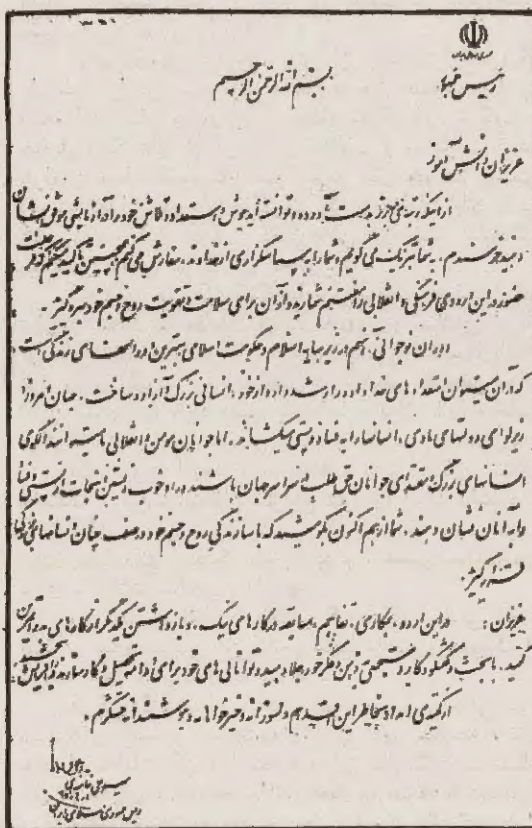 جمهوری اسلامی ایران
رئیس جمهور
بسم الله الرحمن الرحیم
عزیزان دانش آموز
از اینکه رتبه‌ی بدست آورده و توانسته‌اید هوش و استعداد و تلاش خود را در آزمایشی موفق نشان
دهید خرسندم. به شما تبریک می گویم و شما را به سپاسگزاری از خداوند سفارش می کنم و همچنین تاکید میکنم که
حضور در این اردوی فرهنگی و انقلابی را مغتنم شمارید و از آن برای سلامت و تقویت روح و جسم خود بهره گیرید.
دوران نوجوانی، آنهم در زیر سایه اسلام و حکومت اسلامی بهترین دورانهای زندگی است
که در آن میتوان استعدادهای خداداد را رشد داد و از خود، انسانی بزرگ و آزاده ساخت. جهان امروز
زیر لوای دولتهای مادی، انسانها را به فساد و پستی میکشاند. اما جوانان مومن و انقلابی بایسته اند الگوی
انسانهای بزرگ و مقتدای جوانان حق طلب در سراسر جهان باشند و راه خوب زیستن و نجات از پستی و فساد
را به آنان نشان دهند. شما از هم اکنون بکوشید که با سازندگی روح و جسم خود در صف چنان انسانهای بزرگی
قرار گیرید.
عزیزان: در این اردو، همکاری، تفاهم، مسابقه در کارهای نیک، و بازداشتن یکدیگر از کارهای بد را تمرین
کنید. با بحث و گفتگو و کار دستجمعی ذهن و فکر خود را جلا دهید و توانائی های خود برای ادامه تحصیل و کار سازنده را افزایش بخشید.
از کمیته‌ی امداد بخاطر این اقدام دلسوزانه و خیرخواهانه و هوشمندانه متشکرم.
سید علی خامنه‌ای
رئیس جمهوری اسلامی ایران